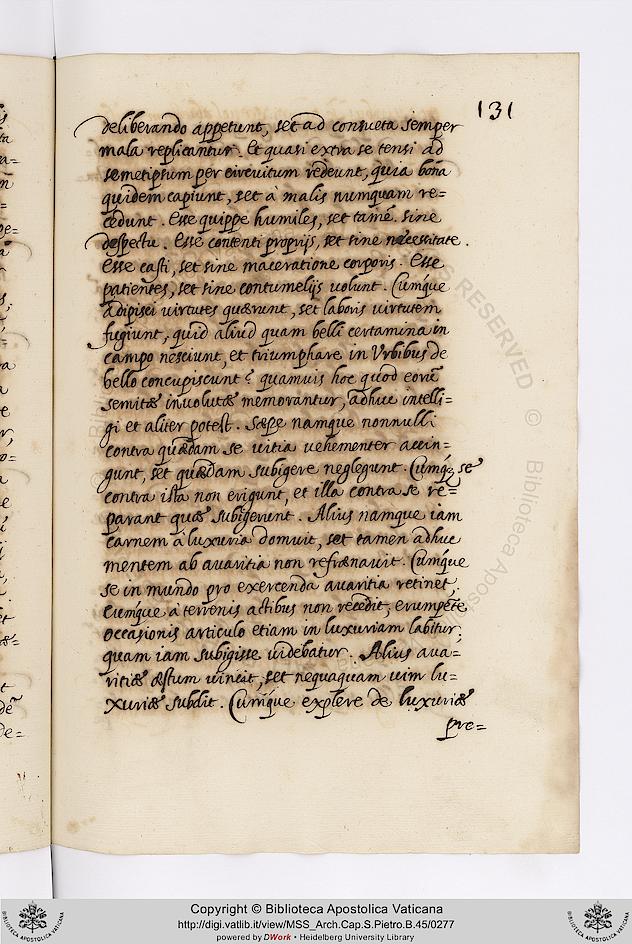 131
deliberando appetunt, set ad consueta semper
mala replicantur. Et quasi extra se tensi ad
semetipsum per circuitum redeunt, quia bona
quidem capiunt, set à malis numquam re=
cedunt. Esse quippe humiles, set tamẽ sine
despectu. Esse contenti proprijs, set sine necessitate.
Esse casti, set sine maceratione corporis. Esse
patientes, set sine contumelijs volunt. Cumque
adipisci virtutes quærunt, set laboris virtutem
fugiunt, quid aliud quam belli certamina in
campo nesciunt, et triumphare in Vrbibus de
bello concupiscunt? quamuis hoc quod eorũ
semitæ inuolutæ memorantur, adhuc intelli=
gi et aliter potest. Sæpe namque nonnulli
contra quædam se vitia vehementer accin=
gunt, set quædam subigere neglegunt. Cumq; se
contra ista non erigunt, et illa contra se re=
parant quæ subigerunt. Alius namque iam
carnem à luxuria domuit, set tamen adhuc
mentem ab auaritia non refrænauit. Cumque
se in mundo pro exercenda auaritia retinet,
Cumque à terrenis actibus non recedit, erumpẽte
occasionis articulo etiam in luxuriam labitur,
quam iam subigisse uidebatur. Alius aua=
ritiæ æstum vincit, set nequaquam uim lu=
xuriæ subdit. Cumque explere de luxuriæ
pre=
Copyright © Biblioteca Apostolica Vaticana
http://digi.vatlib.it/view/MSS_Arch.Cap.S.Pietro.B.45/0277
powered by DWork • Heidelberg University Library